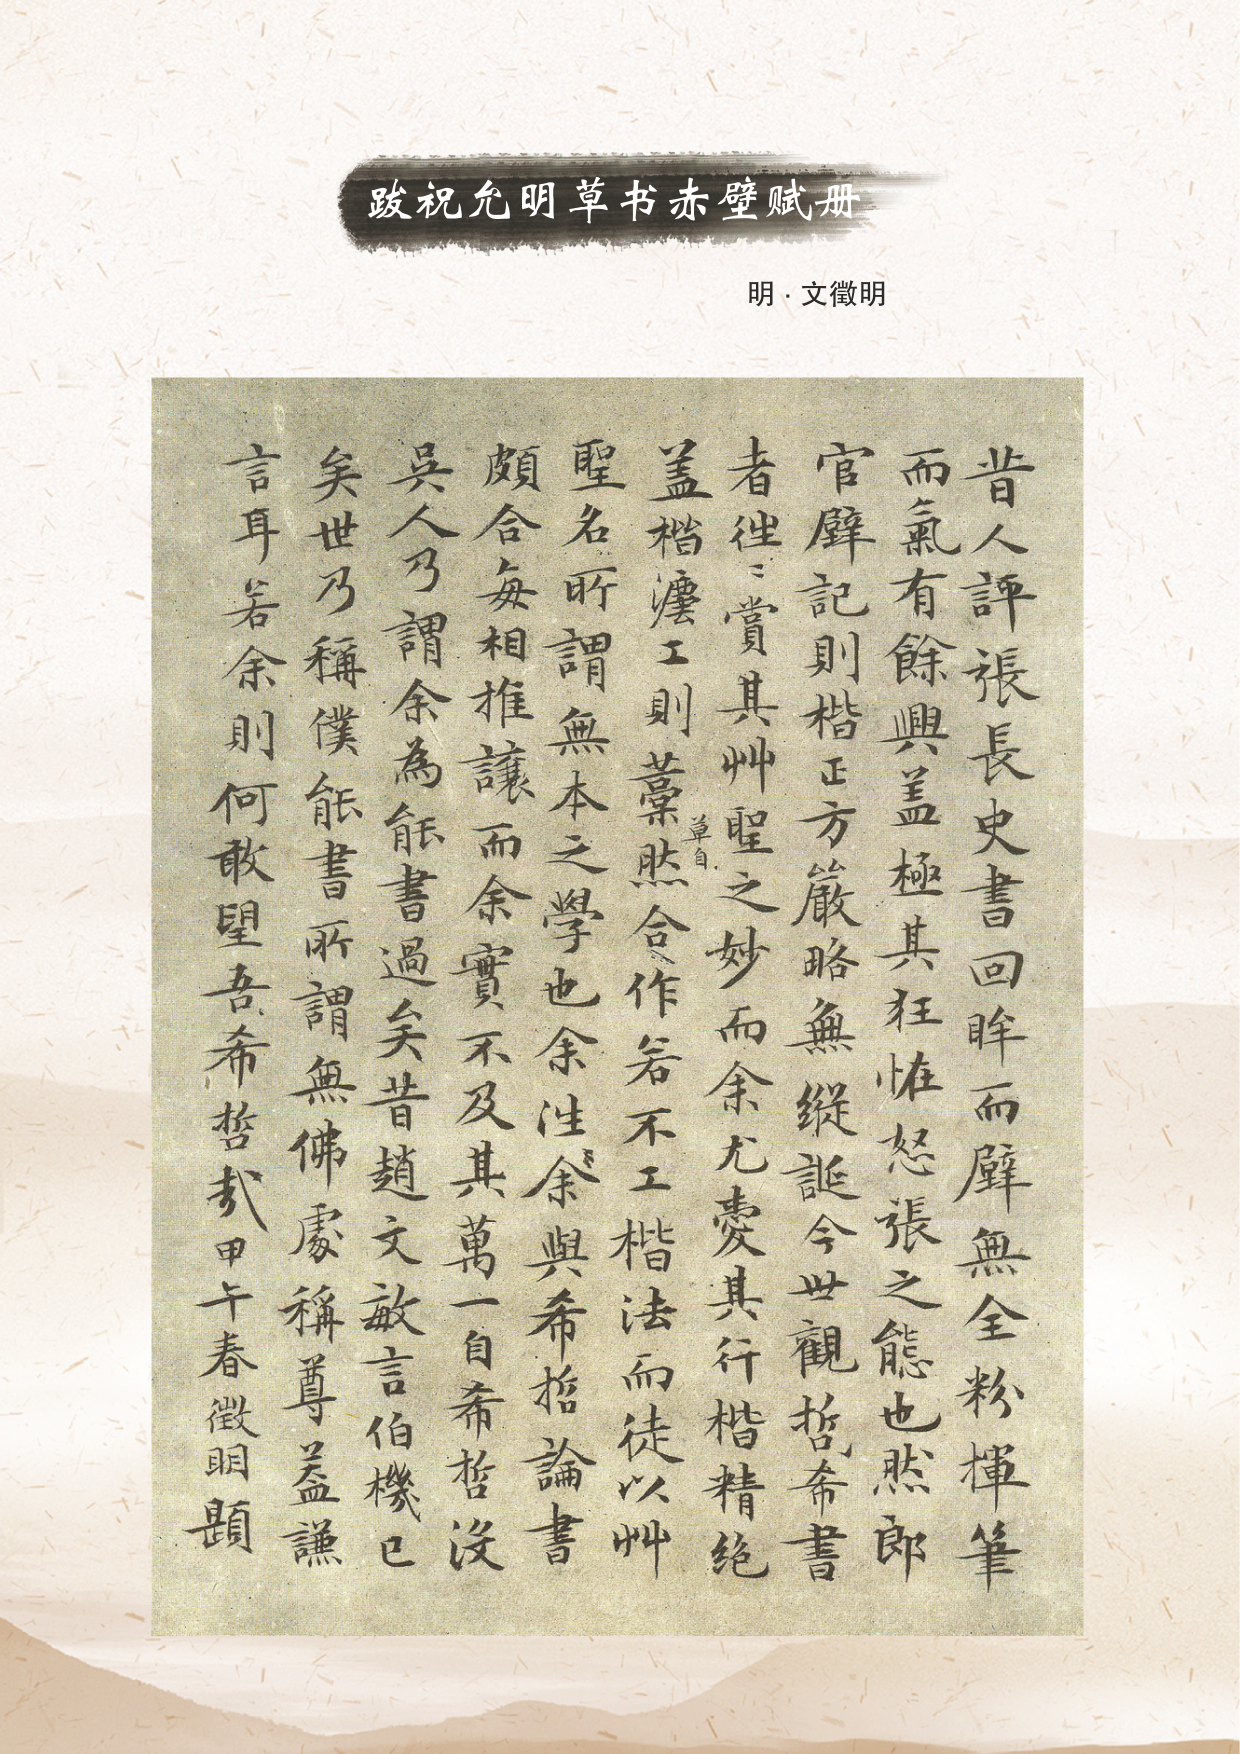 跋祝允明草书赤壁赋册
明·文徵明
昔人評張長史書回眸而壁無全粉揮筆
而氣有餘興盖極其狂怪怒張之態也然郎
官壁記則楷正方嚴略無縱誕今世觀哲希書
者徃〻賞其艸聖之妙而余尤愛其行楷精絶
盖楷灋工則藁草自然合作若不工楷法而徒以艸
聖名所謂無本之學也余徃余與希哲論書
頗合每相推讓而余實不及其萬一自希哲沒
吳人乃謂余為能書過矣昔趙文敏言伯機已
矣世乃稱僕能書所謂無佛處稱尊蓋謙
言耳若余則何敢望吾希哲哉甲午春徵明題